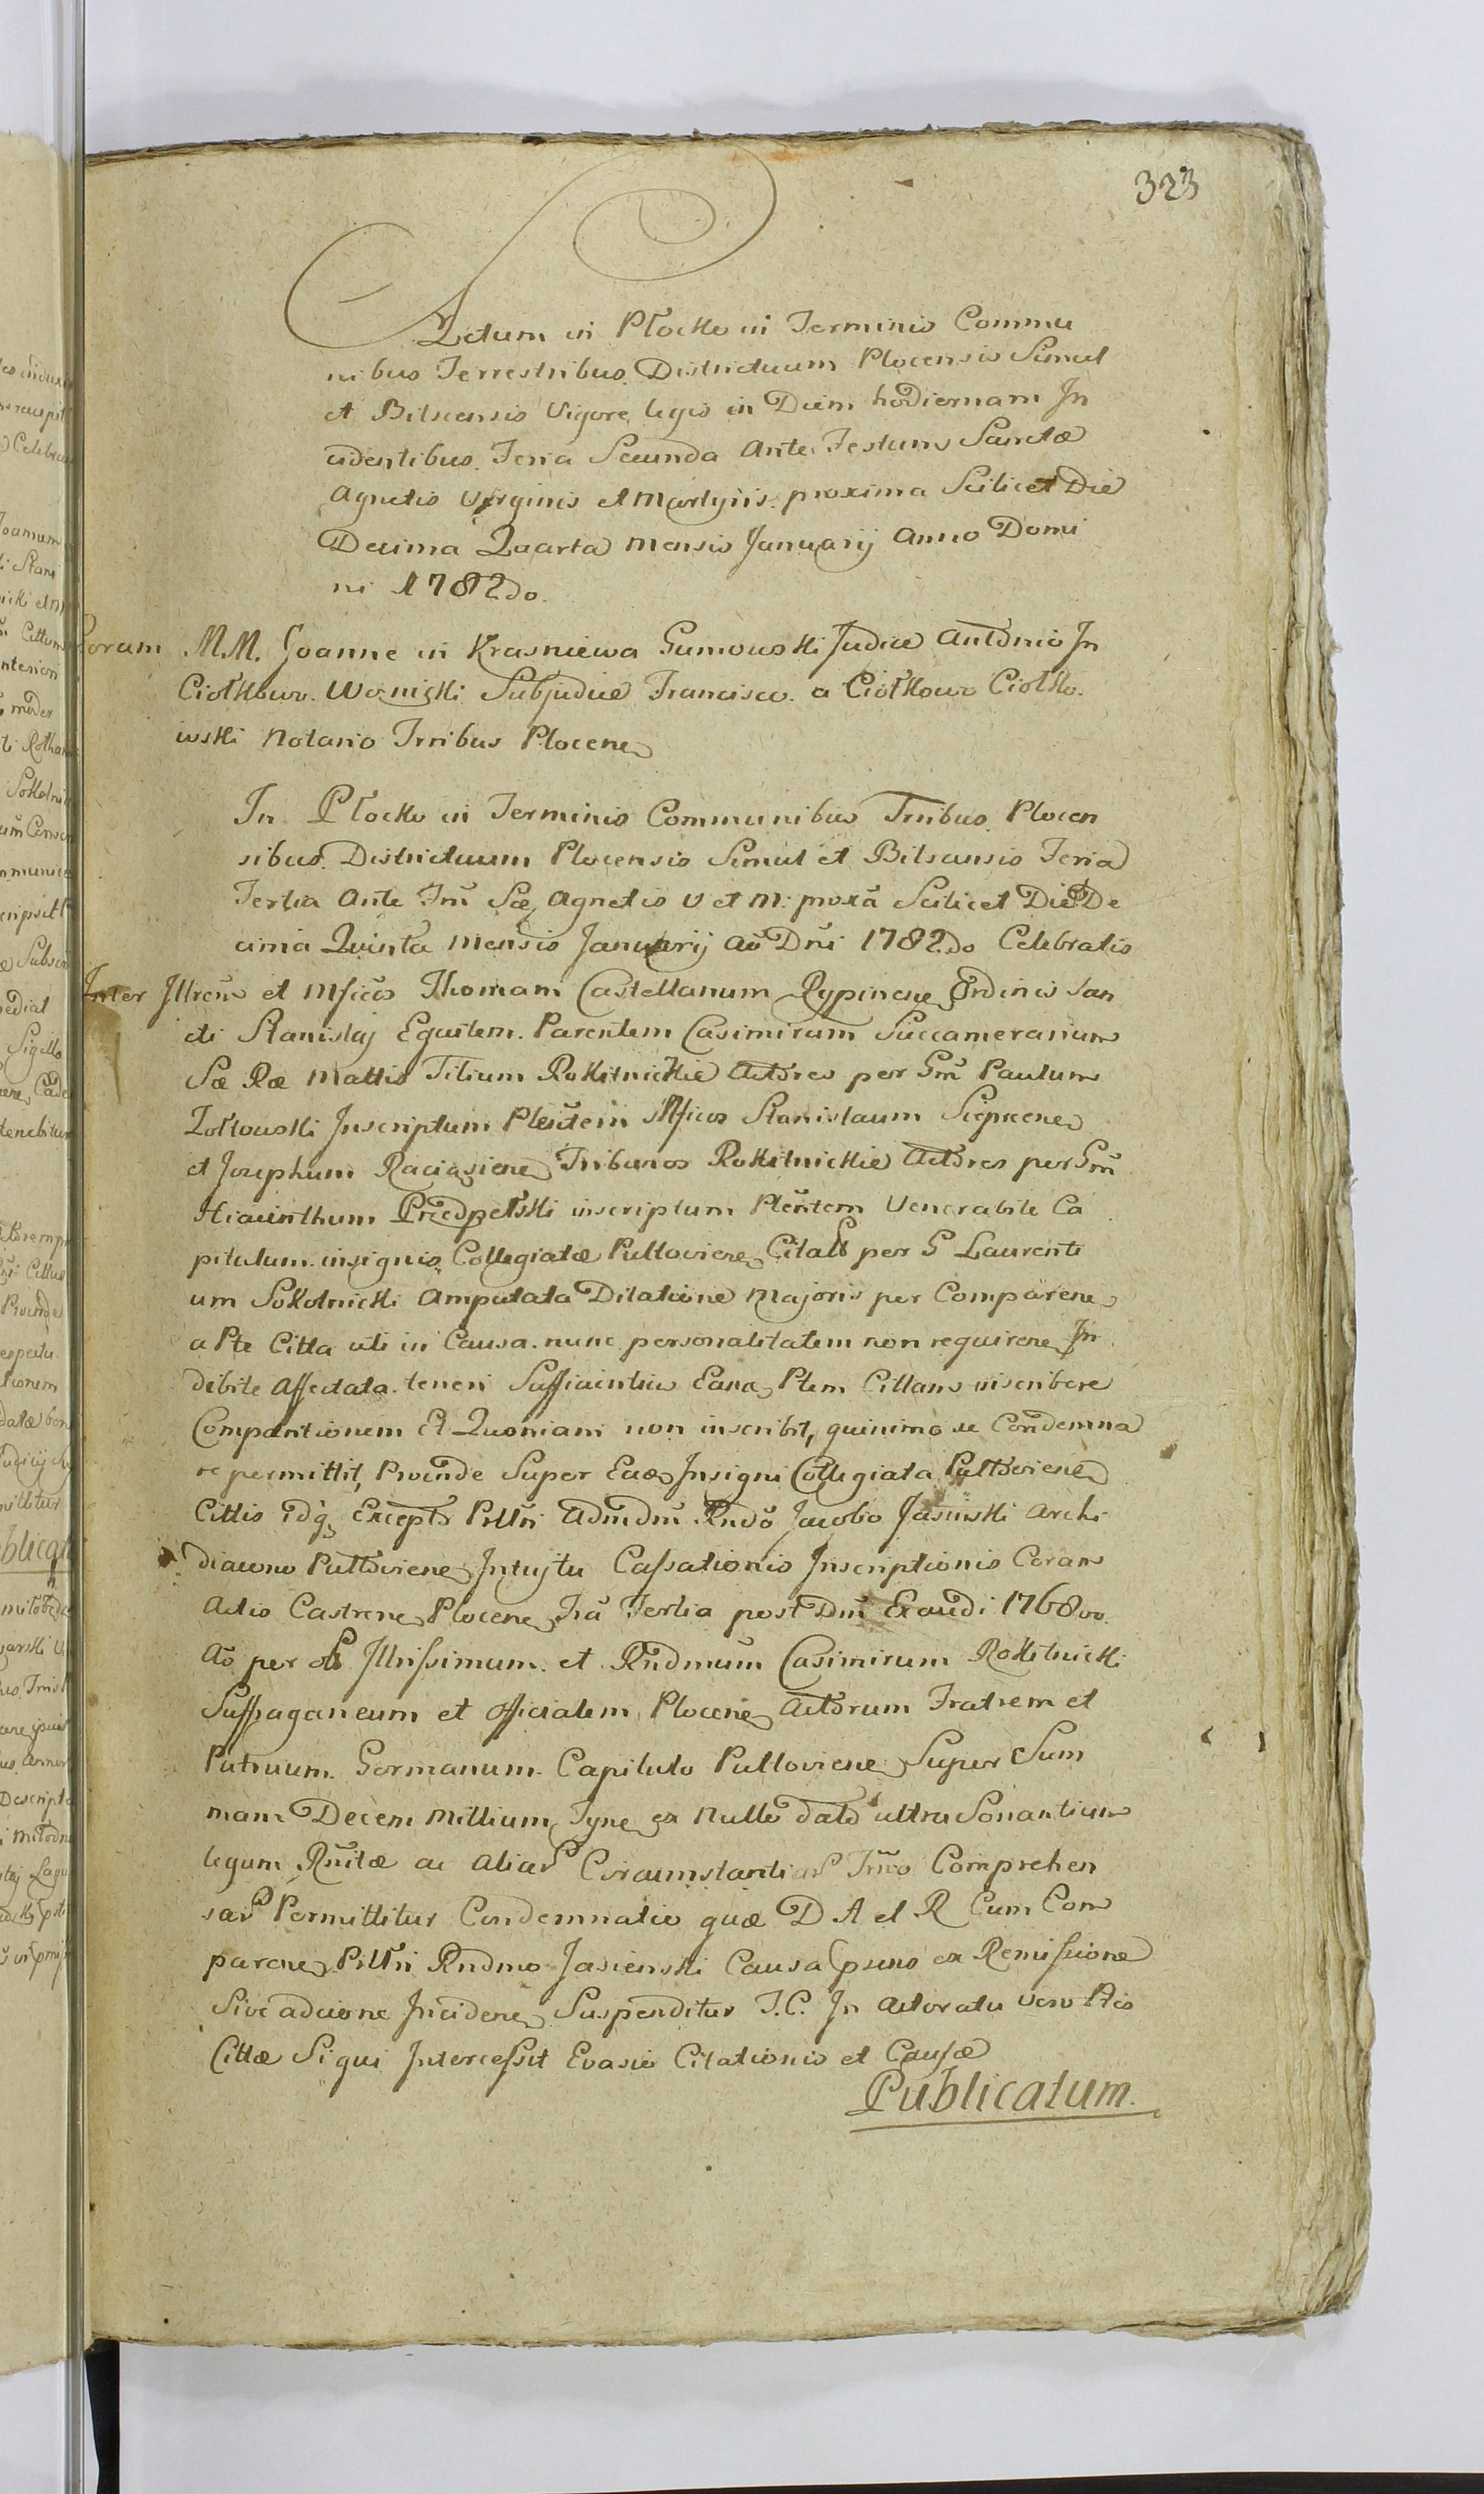 323
Actum in Płocko in Terminis Commu
nibus Terrestribus Districtuum Plocensis Simul
et Bilscensis Vigore legis in Diem hodiernam In
cidentibus Feria Secunda Ante Festum Sanctæ
Agnetis Virginis et Martyris proxima Scilicet Die
Decima Quarta Mensis Januarij Anno Domi
ni 1782do.
Coram M.M. Joanne in Krasniewa Gumowski Judice Antonio In
Ciołkowo Woznicki Subjudice Francisco a Ciołkowo Ciołko
wski Notario Trribus Plocene
In Płocko in Terminis Communibus Trribus Plocen
sibus Districtuum Plocensis Simul et Bilscensis Feria
Tertia Ante Fm̃ Sæ Agnetis V et M: proxã Scilicet Die De
cima Quinta Mensis Januarij Aõ Dñi 1782do Celebratis
Inter Illrem et Mficos Thomam Castellanum Rypinene Ordinis San
cti Stanislaj Equitem Parentem Casimirum Succamerarium
Sæ Ræ Mattis Filium Rokitnickie Actores per Gm̃ Paulum
Zołtowski Inscriptum Plentem Mficos Stanislaum Sieprcene
et Josephum Raciaziene Tribunos Rokitnickie Actores per Gm̃
Hiacinthum inscriptum Plentem Venerabile Ca
pitulum insignis Collegiatæ Pultoviene Citatt per G Laurenti
um Sokolnicki Amputata Dilatione Majoris per Comparene
a Pte Citta uti in Causa nunc personalitatem non requirene In
debite Affectata teneri Sufficientius Eanq Ptem Cittam inscribere
Comparitionem Et Quoniam non inscribit, quinimo se Condemna
re permittit, Proinde Super Eadem Insigni Collegiata Pultoviene
Cittis idq Excepto Admdm̃ Rndõ Jacobo Jasinski Archi
diacono Pultoviene Intujtu Cassationis Inscriptionis Coram
Actis Castrene Plocene Fã Tertia post Dm̃ Exaudi 1768vo.
Aõ per ol Illrissimum et Rndmum Casimirum Rokitnicki
Suffraganeum et officialem Plocene Actorum Fratrem et
Patruum Germanum Capitulo Pultoviene Super Sum
mam Decem Millium Tyne ex Nullo dato ultra Sonantium
legum Rnitæ ac aliar Circumstantiar Trmo Comprehen
sar Permittitur Condemnatio quæ D A et R Cum Com
parene Rndmo Jasienski Causa ex Remissione
Sive adcione Incidene Suspenditur T.C. In Actoratu vero Ptis
Cittæ Siqui Intercessit Evasio Citationis et Causæ
Publicatum.